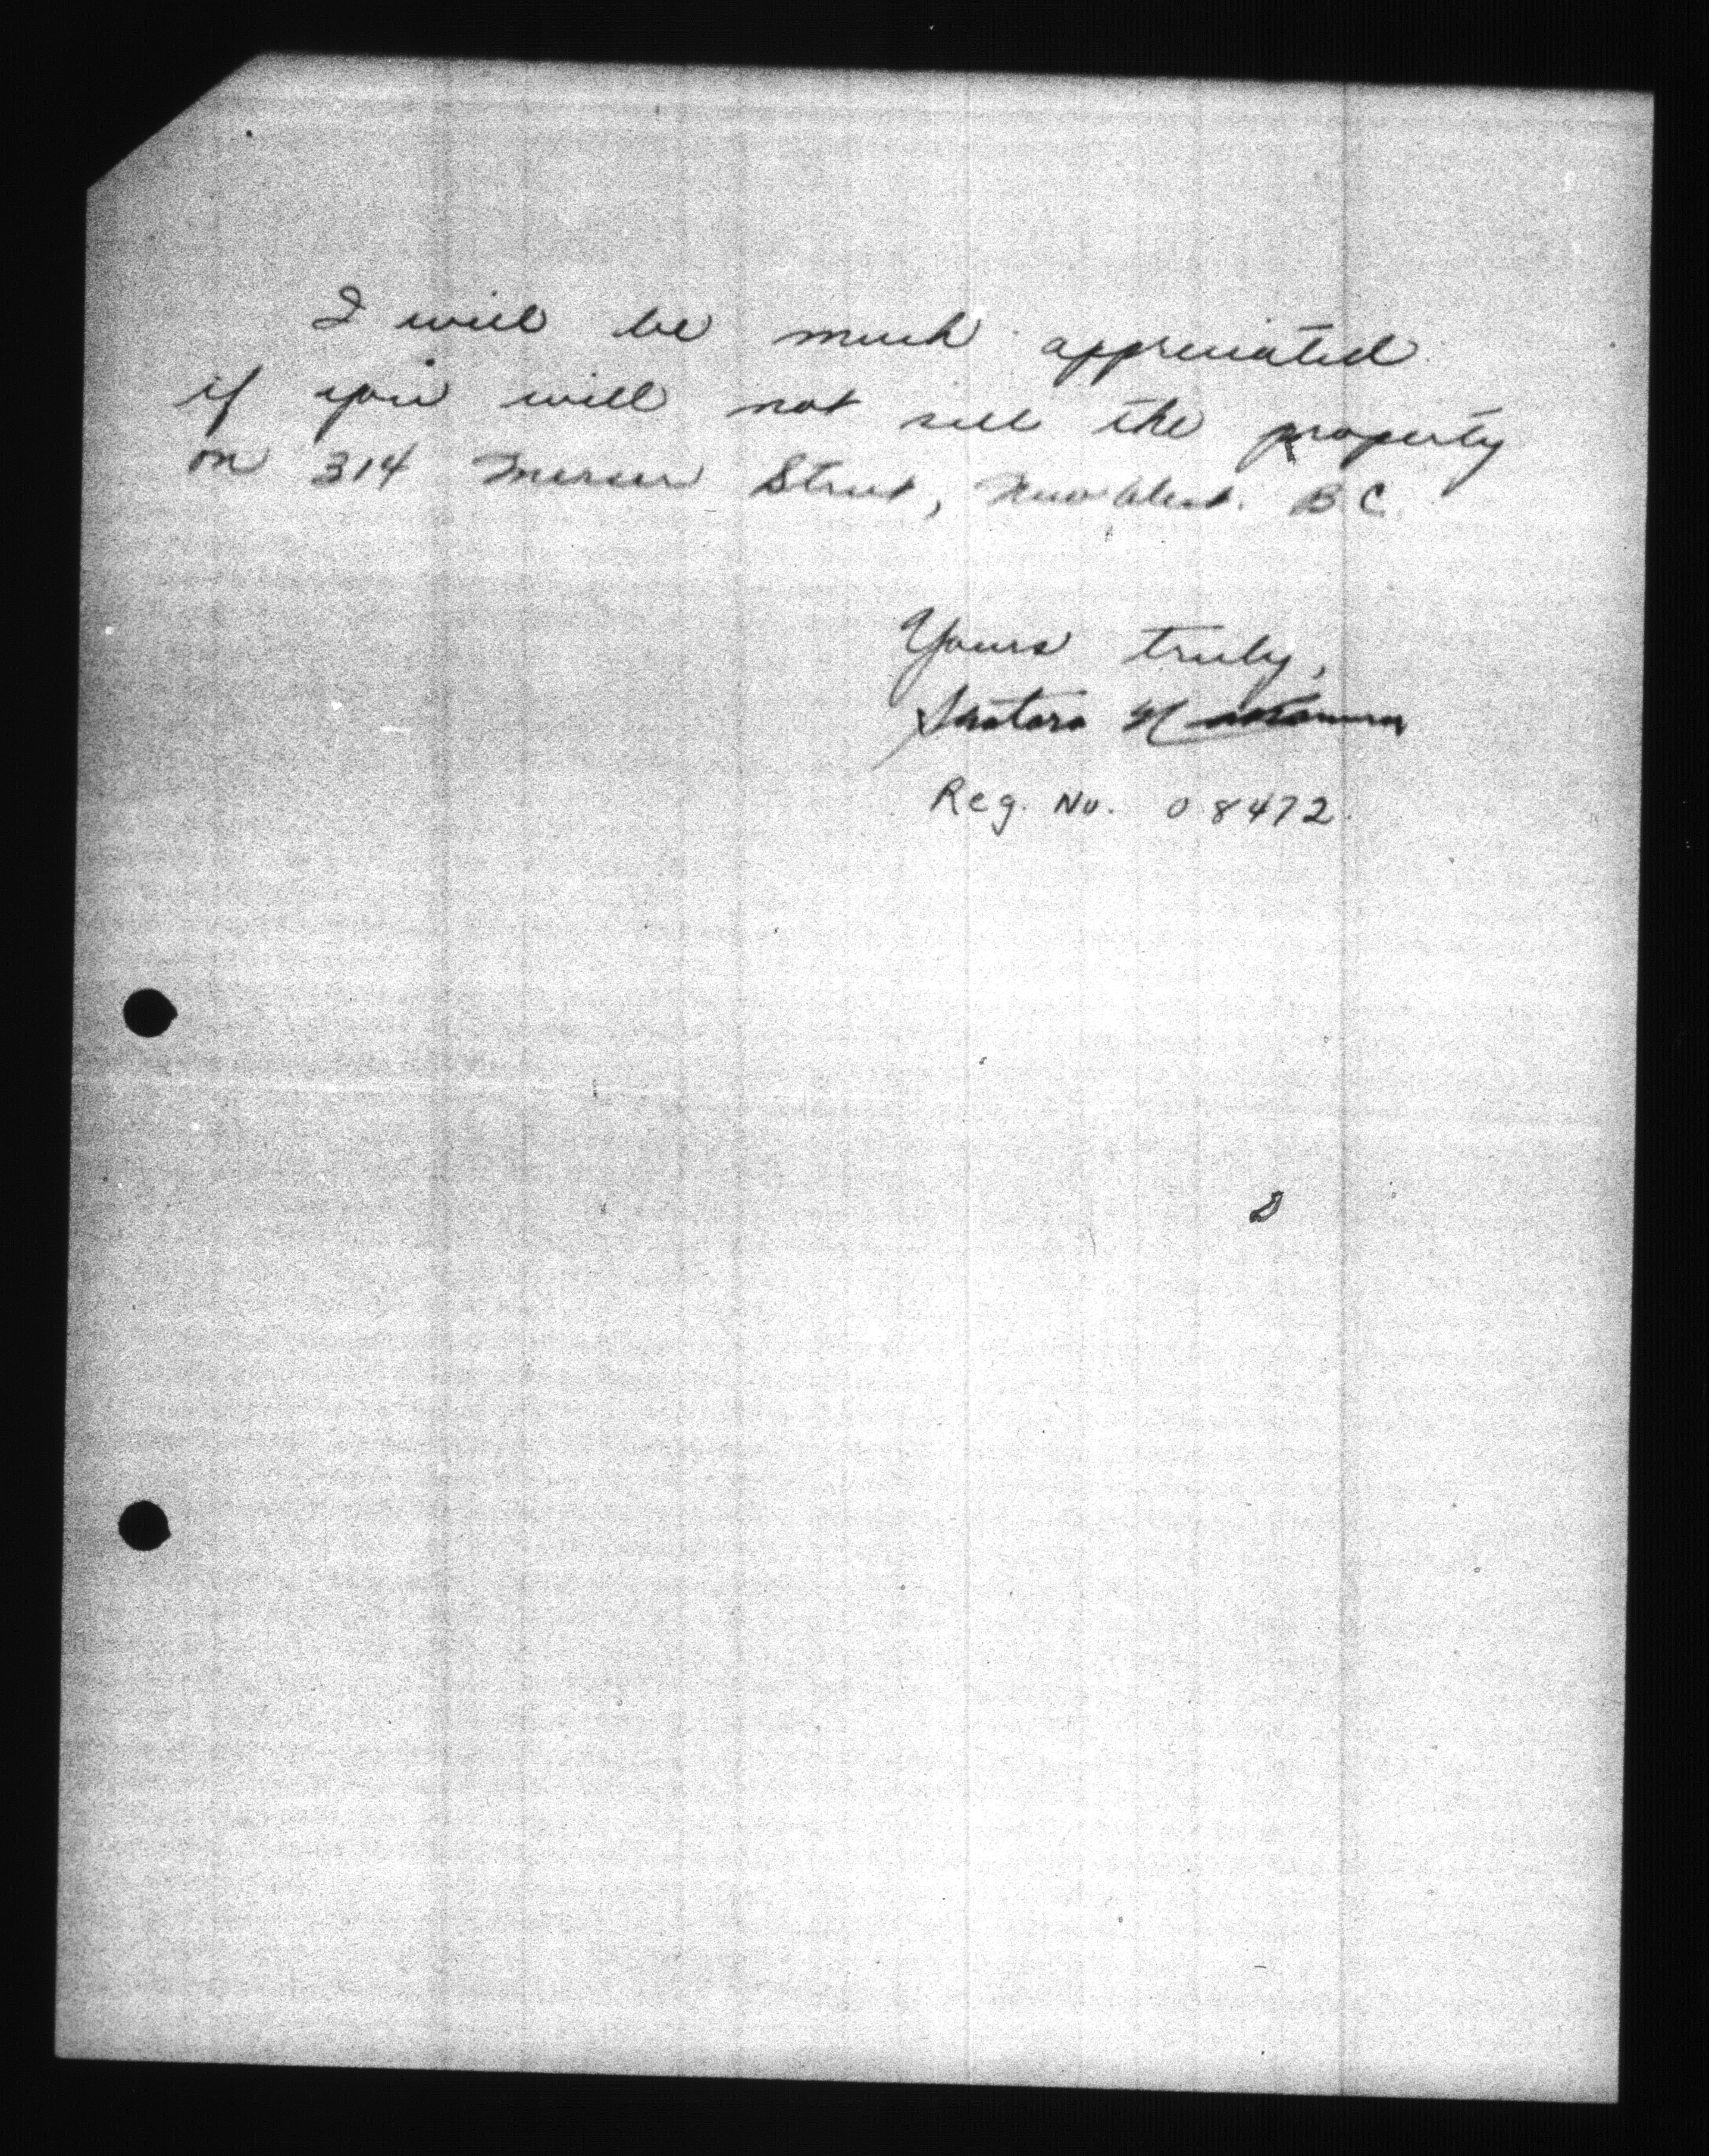 I will be much appreciated
if you will not sell the property
on 314 Mercer Street, New West. B.C.
Yours truly,
Reg. No. 08472.